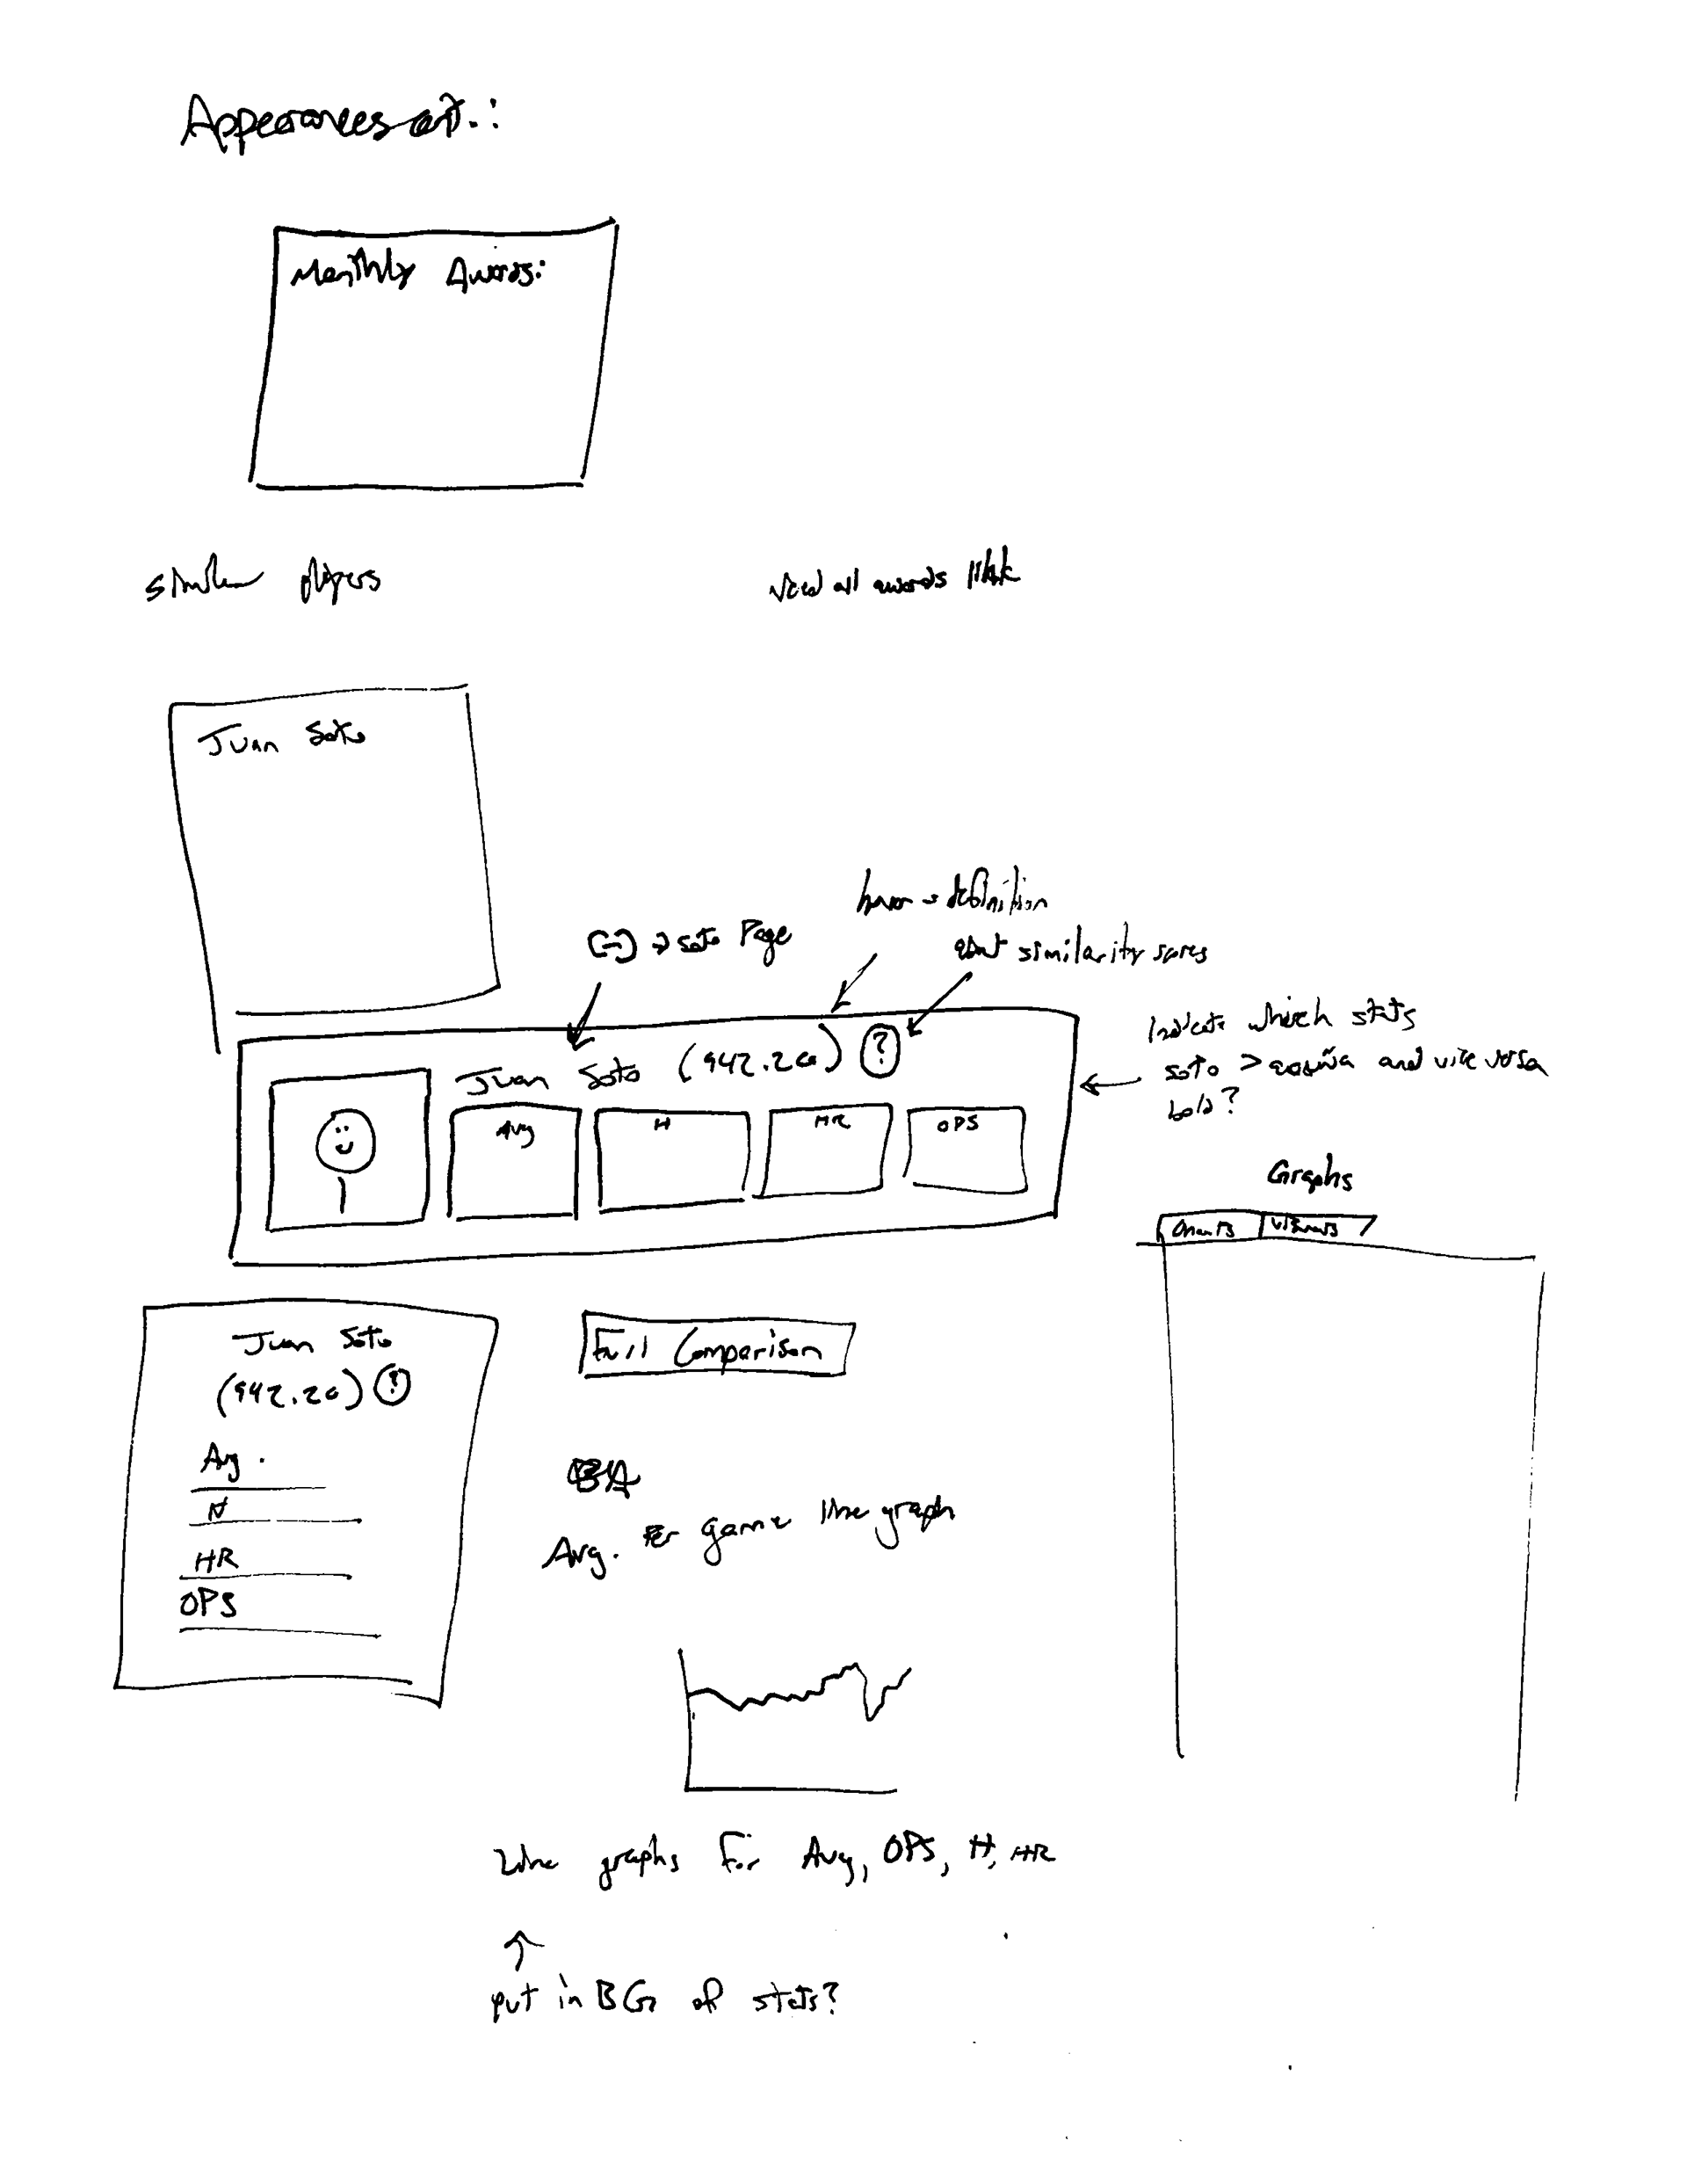 Appearances at.:
Monthly Awards:
similar players
need all awards link
Juan Soto
hover → definition
→ soto Page
about similarity scores
Indicate which stats
soto > acuña and vice versa
bold?
Juan Soto (942.20) ?
Avg
H
HR
OPS
Graphs
Charts
Full Comparison
Juan Soto
(942.20) ?
Avg.
H
HR
OPS
Avg. Per game line graph
Line graphs for Avg, OPS, H, HR
↑
put in BG of stats?